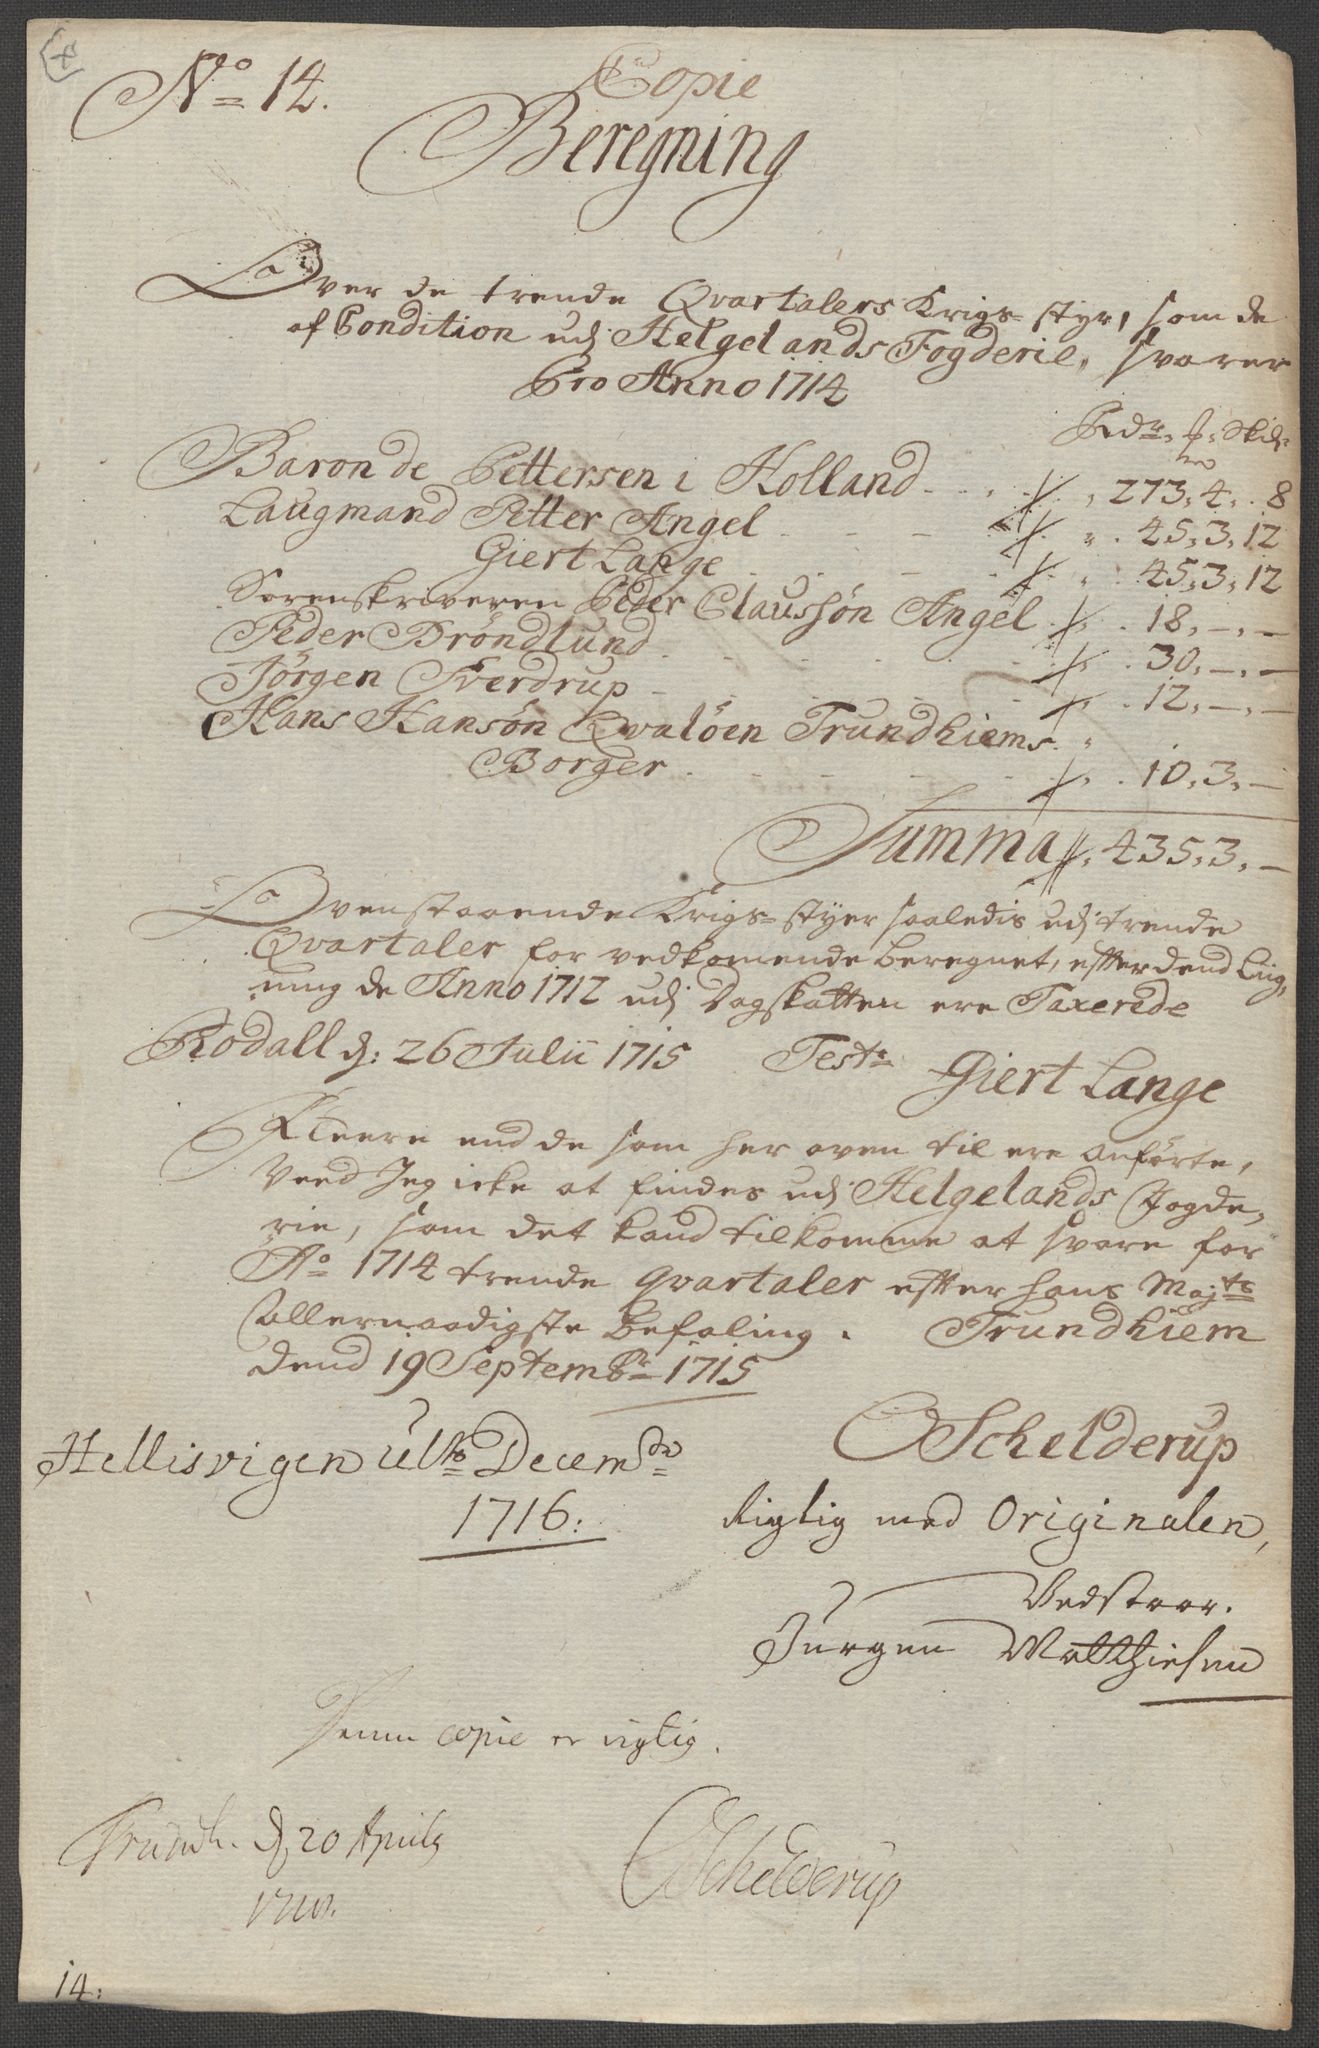 No 14.
Copie
Beregning
Over de trende Qvartalers Krigs-styr, som de
af Condition udj Helgelands Fogderie, svarer
Pro Anno 1714
Rdr. Skil.
Baron de Pettersen i Holland 273. 4. 8
Laugmand Petter Angel 45. 3. 12
Giert Lange 45. 3. 12
Sorenskriveren Peder Claussøn Angel 18. - . -
Peder Brøndlund 30. - . -
Jørgen Sverdrup 12. - . -
Hans Hansøn Qvaløen Trundhiems
Borger 10. 3. -
Summa 435. 3. -
Ovenstaaende Krigs-styer saaledis udj trende
Qvartaler for vedkomende beregnet, effter dend Lig,
ning de Anno 1712 udj Dagskatten ere Taxerede
Rodall d: 26 Julii 1715 Test: Giert Lange
Fleere end de som her oven til ere anførte,
Veed Jeg icke at findes udj Helgelands Fogde,
rie, som det kand tilkomme at svare for
Ao 1714 trende qvartaler effter hans Majts
allernaadigste befaling. Trundhiem
dend 19 Septembr 1715
OSchelderup
Hellisvigen ulto Decembr
1716:
Rigtig med Originalen,
Vedstaar.
Jürgen Matthiesen
Denne copie er rigtig.
Trundh. d 20 Aprilj
OSchelderup
14: